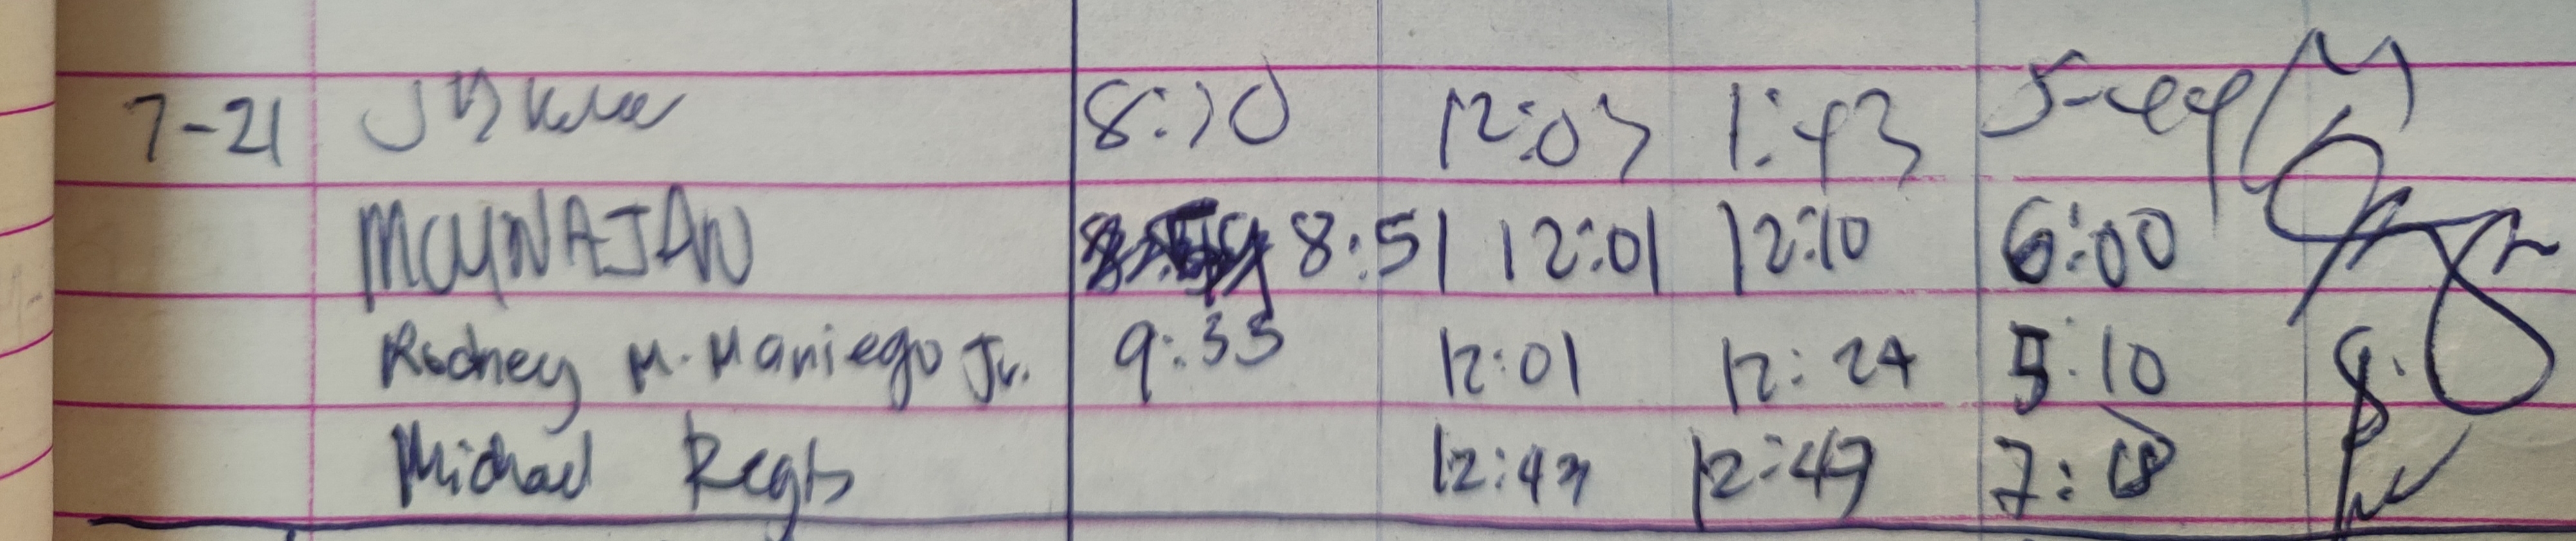 7-21 8:10 12:03 1:43 5-44
8:51 12:01 12:10 6:00
Rodney M. Maniego Jr. 9:33 12:01 12:24 5:10
Michael Regis 12:47 12:47 7:18